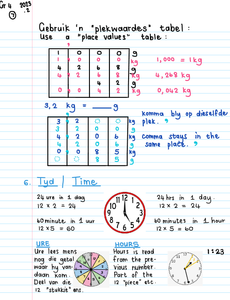 Gr 4 2023
.2
7
Gebruik 'n "plekwaardes" tabel :
Use a "place values" table :
1 0 0 0 g
1 0 0 0 kg
4 2 6 8 g
4 2 6 8 kg
4 2 g
0 0 4 2 kg
1,000 = 1 kg
4,268 kg
0,042 kg
3,2 kg = ____ g
3 2 kg
3 2 0 0 g
4 2 kg
4 2 0 0 g
0 0 8 5 kg
8 5 g
komma bly op dieselfde
plek.
comma stays in the
same place.
6. Tyd | Time
24 ure in 1 dag
12 x 2 = 24
60 minute in 1 uur
12 x 5 = 60
24 hrs in 1 day.
12 x 2 = 24
60 minutes in 1 hour
12 x 5 = 60
URE
Ure lees mens
nog die getal
waar hy van-
daan kom.
Deel van die
12 "stukkie" ens.
HOURS
Hours is read
from the pre-
vious number.
Part of the
12 "piece" etc.
11:23